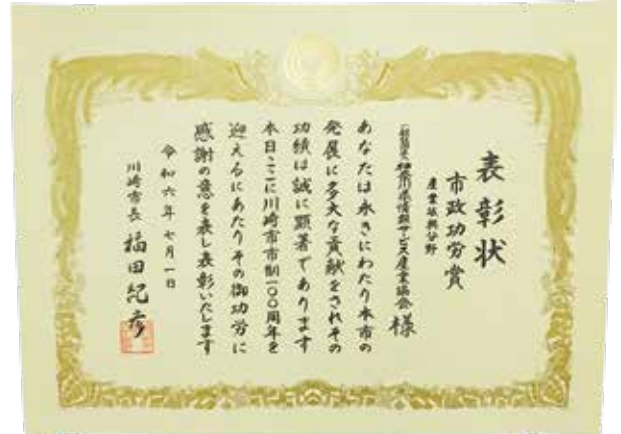 表彰状
市政功労賞
産業振興分野
一般社団法人神奈川県情報サービス産業協会 様
あなたは永きにわたり本市の
発展に多大な貢献をされその
功績は誠に顕著であります
本日ここに川崎市市制一〇〇周年を
迎えるにあたりその御功労に
感謝の意を表し表彰いたします
令和六年七月一日
川崎市長 福田紀彦